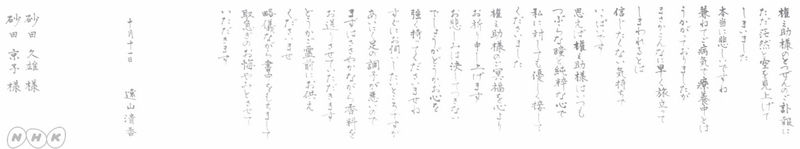 権之助様のとつぜんのご訃報に
ただ茫然と空を見上げて
しまいました
本当に悲しいですね
兼ねてご病気ご療養中とは
うかがっておりましたが
まさかこんなに早く旅立って
しまわれるとは
信じたくない気持ちで
いっぱいです
思えば権之助様はいつも
つぶらな瞳と純粋な心で
私に対しても優しく接して
くださいました
権之助様のご冥福を心より
お祈り申し上げます
お悲しみは決してつきない
でしょうがどうかお心を
強く持ってくださいませね
すぐに伺いたいところですが
あいにく足の調子が悪いので
まずはささやかながら香料を
お送りさせていただきます
どうかご霊前にお供え
くださいませ
略儀ながら書中をもちまして
取急ぎのお悔やみとさせて
いただきます
十月十一日
遠山清吾
砂田久雄様
砂田京子様
NHK